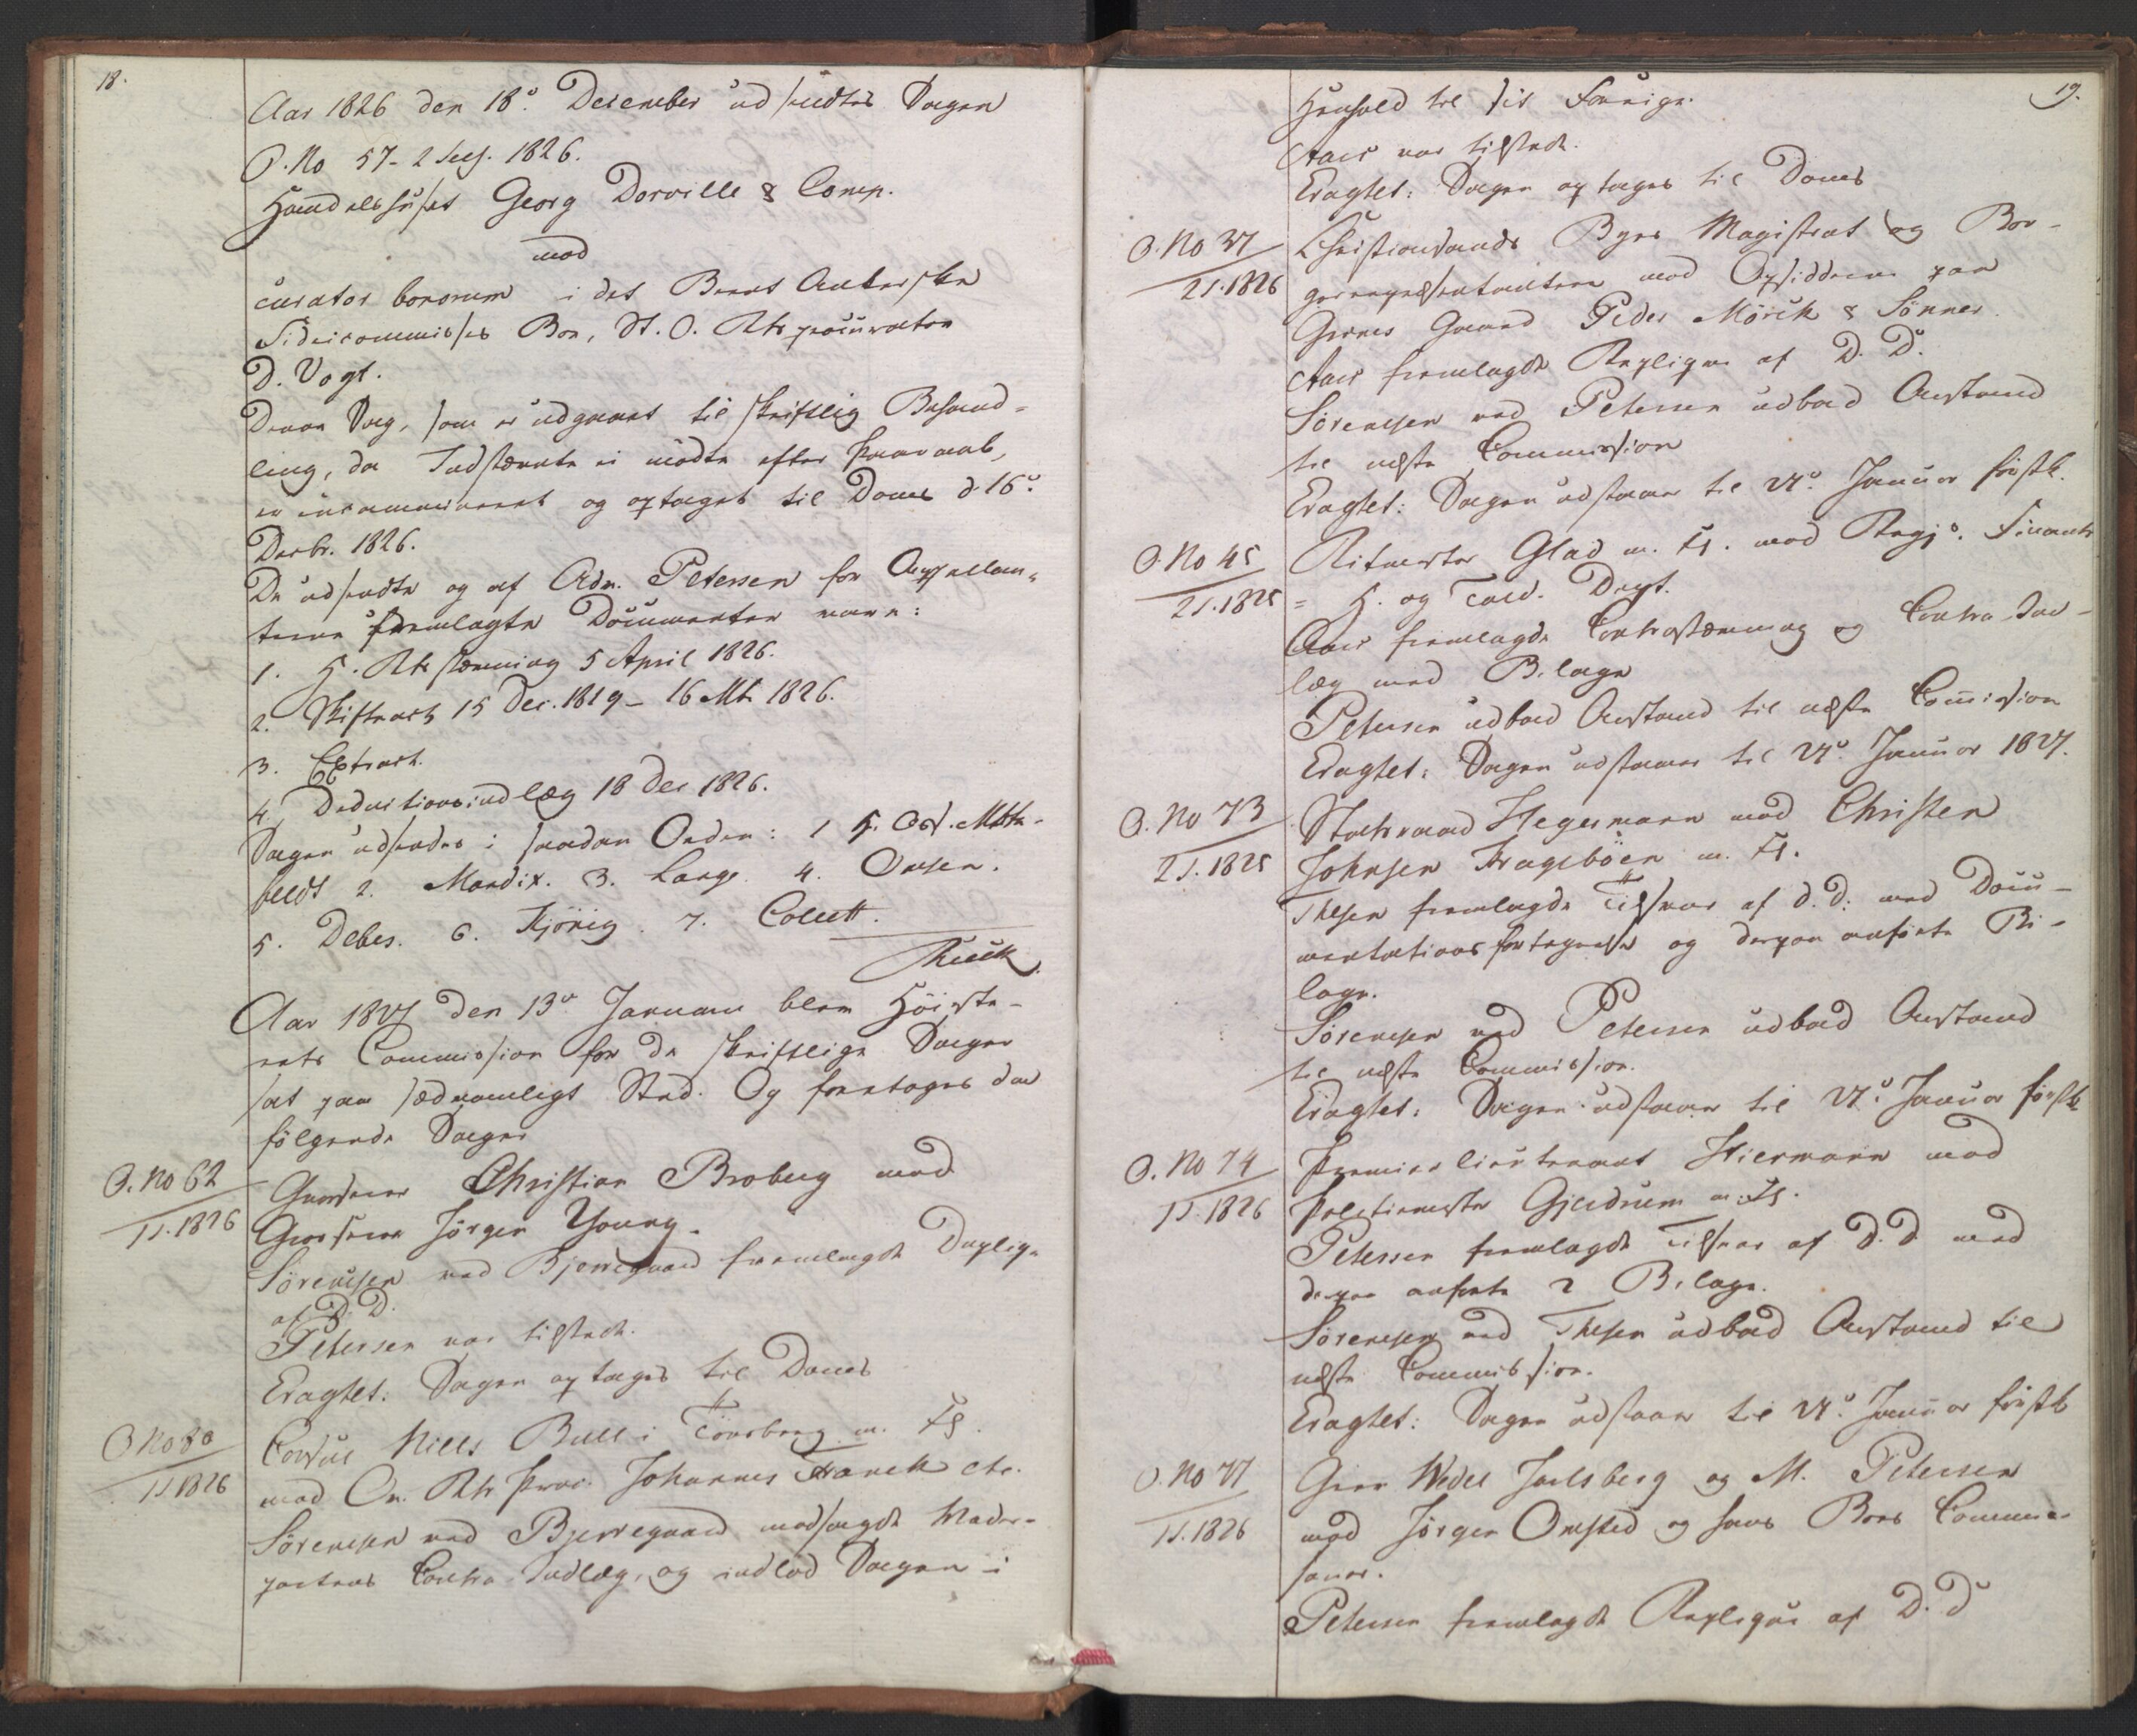 18.
Aar 1826 den 18de December udsendtes Sagen
P. No 57 - 2 Sess. 1826.
Handelshuset Georg Dorville & Comp.
mod
curator bonorum i det Bernt Ankerske
Fideicommisses Boe, St. O. Rts procurator
D. Vogt.
Denne Sag, som er udgaaet til skriftlig Behand-
ling, da Indstævnte ei mødte efter Paaraab,
er incamineret og optaget til Doms d. 16de
Decbr. 1826.
De udsendte og af Adv. Petersen for Appellan-
terne fremlagte Documenter vare:
1. H. Rts stævning 5 April 1826.
2. Skifteact 15 Dec. 1819 - 16 Mts 1826.
3. Extract.
4. Deductionsindlæg 18 Dec 1826.
Sagen udsendes i saadan Orden: 1
feldt 2. Mandix. 3. Lange. 4. Omsen.
5. Debes. 6. Kjönig. 7. Collett.
Aar 1827 den 13de Januar blev Høieste-
rets Commission for de skriftlige Sager
sat paa sædvanligt Sted. Og foretoges da
følgende Sager
O. No 62
1 S. 1826
Grosserer Christian Broberg mod
Grosserer Jörgen Young.
Sörensen ved Bjerregaard fremlagde Duplique
af D. D.
Petersen var tilstede.
Eragtet: Sagen optages til Doms
O No 80
1 S 1826
Consul Niels Bull i Tönsberg m. Fl.
mod Ov. Rts Proc. Johannes Franck etc.
Sörensen ved Bjerregaard modsagde Veder-
partens Contra Indlæg, og indlod Sagen i
19.
Henhold til sit Forrige.
Aars var tilstede.
Eragtet: Sagen optages til Doms
O. No 37
2 S. 1826
Christiansands Byes Magistrat og Bor-
gerrepræsentantere mod Opsidderne paa
Gaard Peder Mörch & Sönner.
Aars fremlagde Repliquen af D. D.
Sörensen ved Petersen udbad Anstand
til næste Commission
Eragtet: Sagen udstaaer til 27de Januar førstk.
O. No 45
2 S. 1825
Ritmester Glad m. Fl. mod Regjs. Finants
= H. og Told. Dept.
Aars fremlagde Contrastævning og Contra-Ind-
læg med Bilage
Petersen udbad Anstand til næste Commission
Eragtet: Sagen udstaaer til 27de Januar 1827.
O. No 73
2 S. 1825
Statsraad Hegermann mod Christen
Johnsen Kragebøen m. Fl.
Thesen fremlagde Tilsvar af d. D. med Docu-
mentationsfortegnelse og derpaa anførte Bi-
lage.
Sörensen ved Petersen udbad Anstand
til næste Commission.
Eragtet: Sagen udstaaer til 27de Januar førstk
O. No 74
1 S. 1826
Premierlieutenant Hiermann mod
Politiemester Gjerdrum m. Fl.
Petersen fremlagde Tilsvar af D. D. med
derpaa anførte 2 Bilage.
Sörensen ved Thesen udbad Anstand til
næste Commission.
Eragtet: Sagen udstaaer til 27de Januar førstk
O. No 77
1 S. 1826
Grev Wedel Jarlsberg og M. Petersen
mod Jörgen Omsted og hans Boes Commis-
sairer.
Petersen fremlagde Replique af D. D